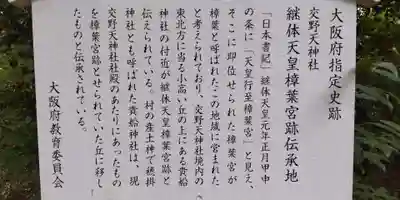 大阪府指定史跡
継体天皇樟葉宮跡伝承地
交野天神社
「日本書記」継体天皇元年正月甲申
の条に、「天皇行至樟葉宮」と見え、
そこに即位せられた樟葉宮が
樟葉と呼ばれたこの地域に営まれた
と考えられており、交野天神社境内の
東北方に当る小高い丘の上にある貴船
神社の付近が継体天皇樟葉宮跡と
伝えられている。村の産土神で穂掛
神社とも呼ばれた貴船神社は、現
交野天神社社殿のあたりにあったもの
を樟葉宮跡とせられていた丘に移し
たものと伝承されている。
大阪府教育委員会